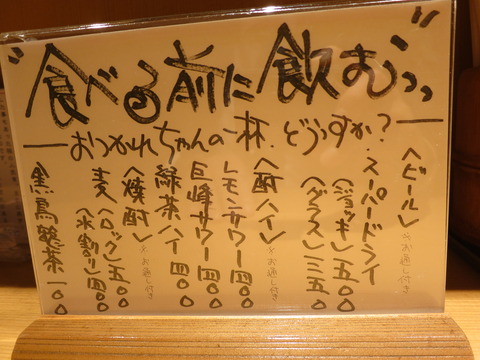 "食べる前に飲むっっ"
―おつかれちゃんの一杯.どうすか?―
<ビール> ※お通し付き
スーパードライ
<ジョッキ>五〇〇
<グラス>三五〇
<酎ハイ> ※お通し付き
レモンサワー四〇〇
巨峰サワー四〇〇
緑茶ハイ四〇〇
<焼酎> ※お通し付き
麦<ロック>五〇〇
<水割り>四〇〇
黒烏龍茶一〇〇